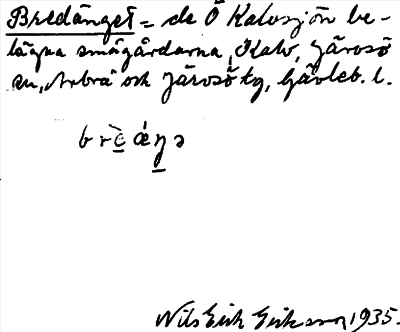 Bredänget = de Ö Kalvsjön be-
lägna smågårdarna, Kalv, Järvsö
sn, Arbrå och Järvsö tg, Gävleb. l.
Nils Erik Eriksson 1935.